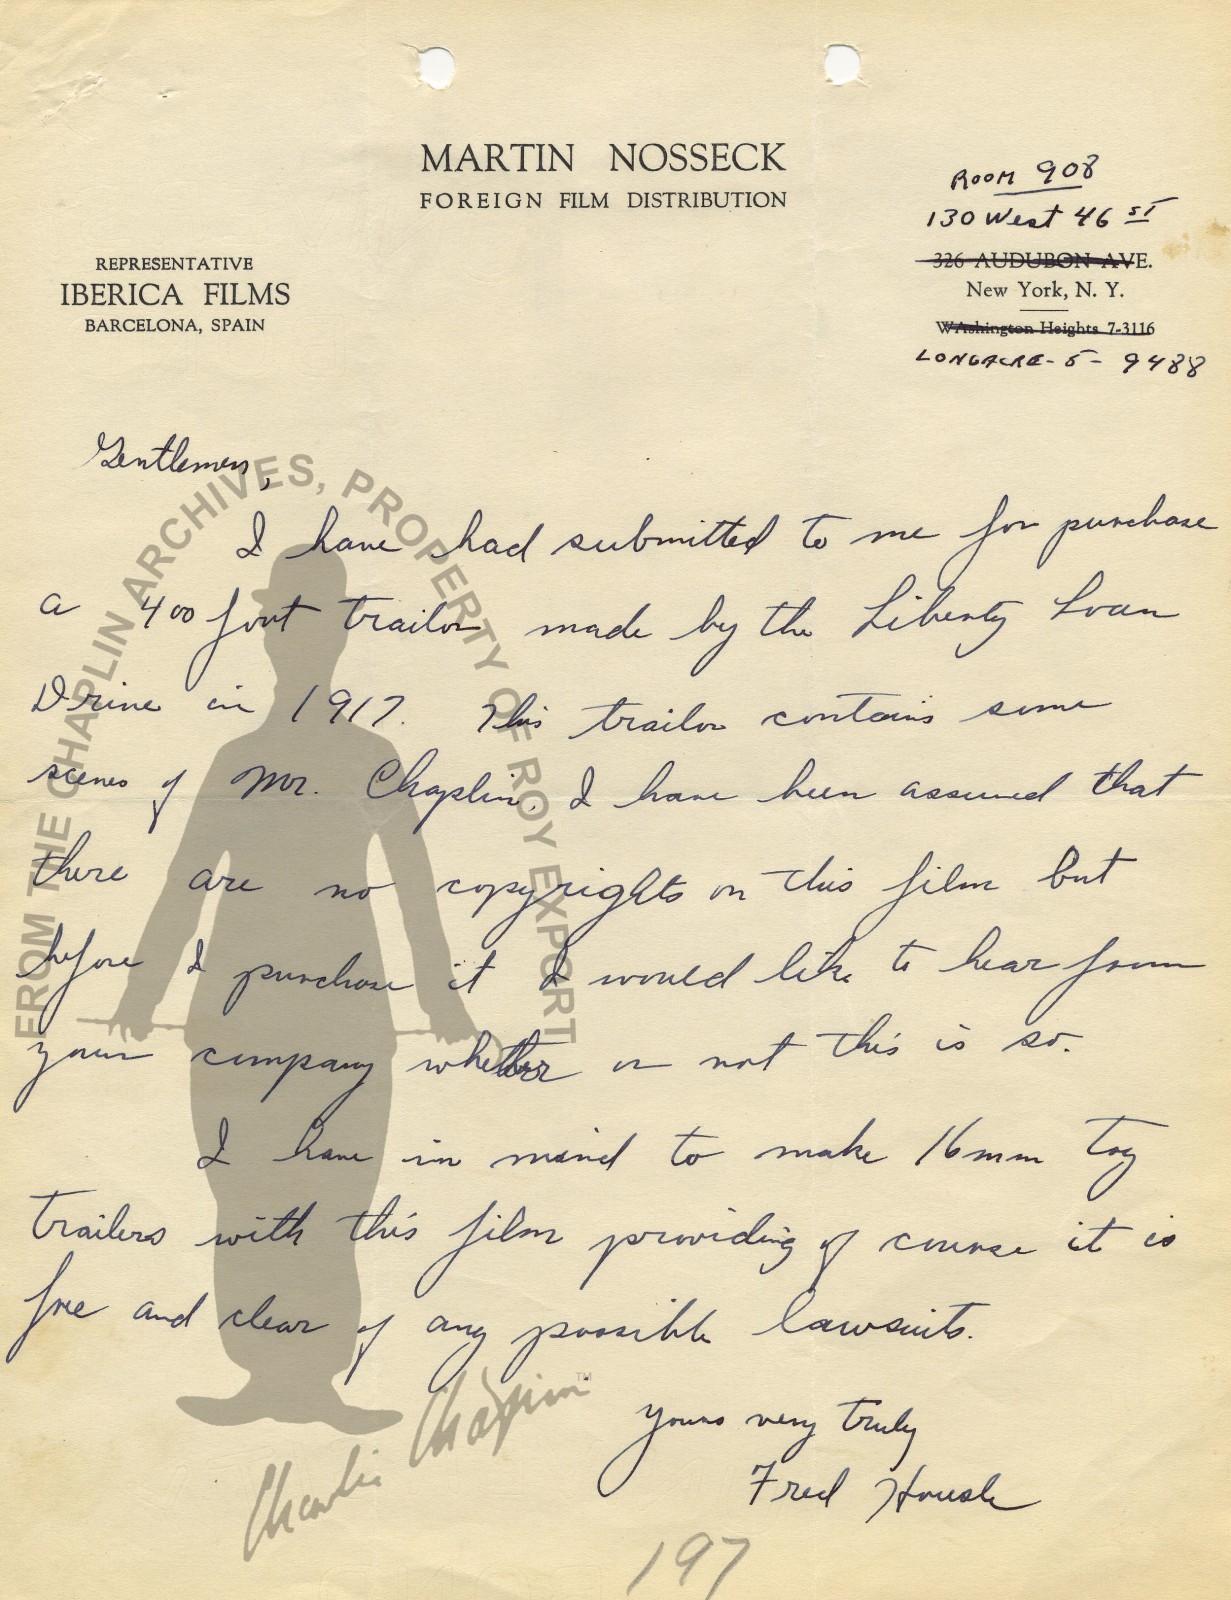 MARTIN NOSSECK
FOREIGN FILM DISTRIBUTION
REPRESENTATIVE
IBERICA FILMS
BARCELONA, SPAIN
ROOM 908
130 West 46 ST
326 AUDUBON AVE.
New York, N. Y.
WAshington Heights 7-3116
LONGACRE - 5 - 9488
Gentlemen,
I have had submitted to me for purchase
a 400 foot trailor made by the Liberty Loan
Drive in 1917. This trailor contains some
scenes of Mr. Chaplin. I have been assured that
there are no copyrights on this film but
before I purchase it I would like to hear from
your company whether or not this is so.
I have in mind to make 16mm toy
trailers with this film providing of course it is
free and clear of any possible lawsuits.
Yours very truly
Fred
197
FROM THE CHAPLIN ARCHIVES, PROPERTY OF ROY EXPORT
Charlie Chaplin TM